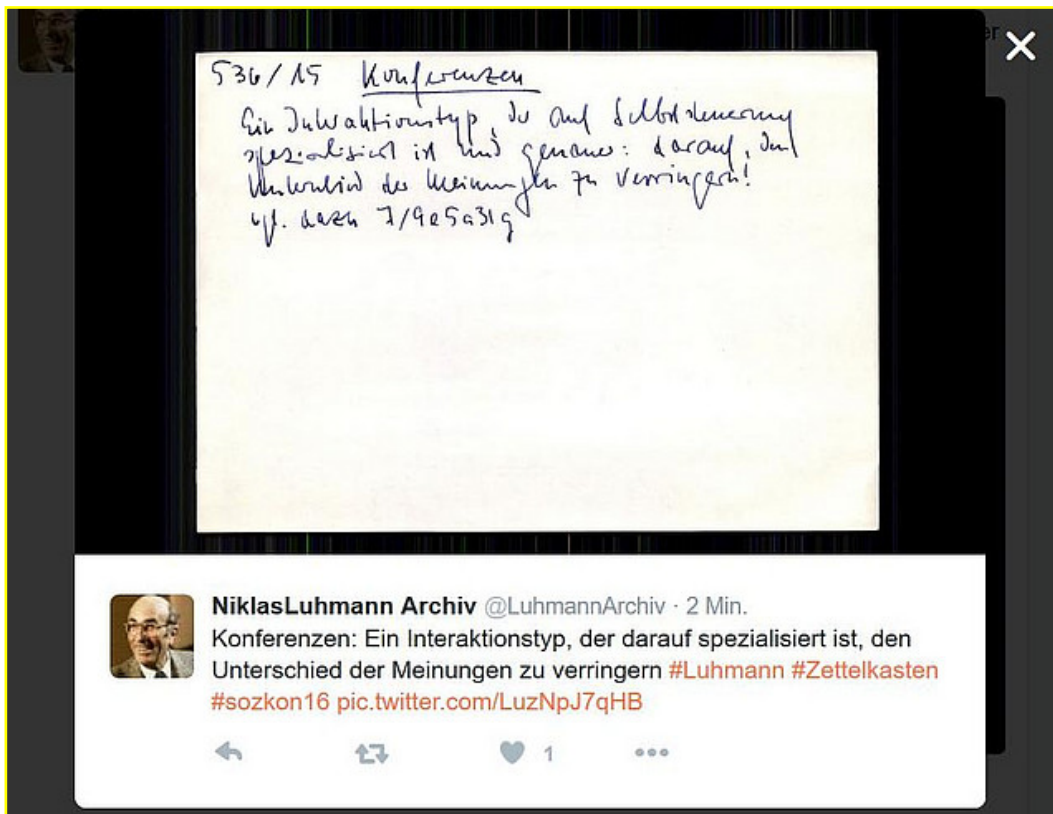 536/15 Konferenzen
Ein Interaktionstyp, der auf Selbststeuerung
spezialisiert ist und genauer: darauf, den
Unterschied der Meinungen zu verringern!
vgl. dazu 7/9e5a31g
NiklasLuhmann Archiv @LuhmannArchiv · 2 Min.
Konferenzen: Ein Interaktionstyp, der darauf spezialisiert ist, den
Unterschied der Meinungen zu verringern #Luhmann #Zettelkasten
#sozkon16 pic.twitter.com/LuzNpJ7qHB
1